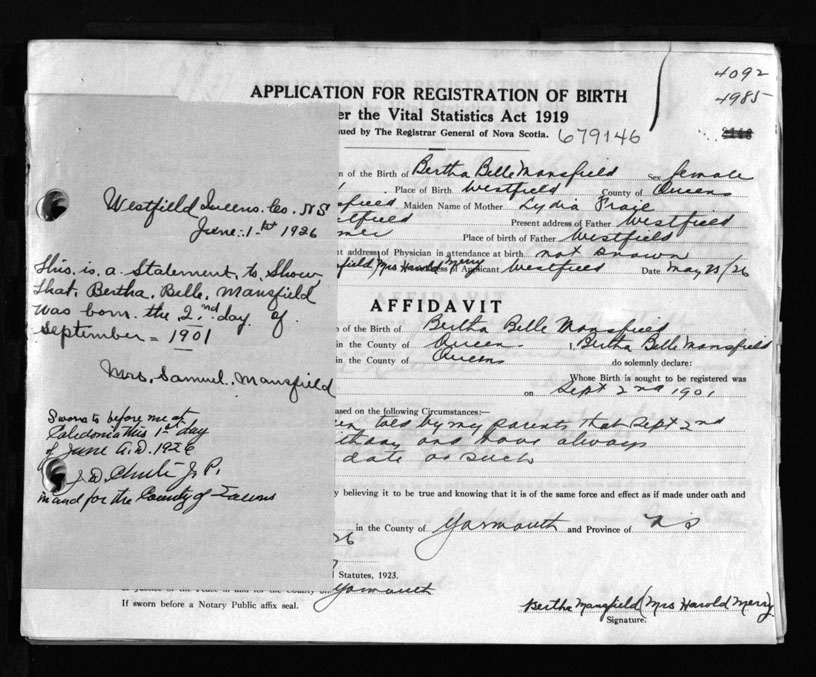 4092
4985
APPLICATION FOR REGISTRATION OF BIRTH
er the Vital Statistics Act 1919
ued by The Registrar General of Nova Scotia. 679146
n of the Birth of Bertha Belle Mansfield Sex female
Place of Birth Westfield County of Queens
sfield Maiden Name of Mother Lydia
stfield Present address of Father Westfield
mer Place of birth of Father Westfield
t address of Physician in attendance at birth not known
field Mrs Harold Merry ess of Applicant Westfield Date May 25/26
AFFIDAVIT
n of the Birth of Bertha Belle Mansfield
in the County of Queens I, Bertha Belle Mansfield
in the County of Queens do solemnly declare:
Whose Birth is sought to be registered was
on Sept 2nd 1901
ased on the following Circumstances:—
een told by my parents that Sept 2nd
irthday and have always
date as such
y believing it to be true and knowing that it is of the same force and effect as if made under oath and
in the County of Yarmouth and Province of N S
26
Statutes, 1923.
Yarmouth
If sworn before a Notary Public affix seal.
Bertha Mansfield (Mrs Harold Merry
Signature.
Westfield Queens. Co. N S
June. 1st 1926
This. is. a. Statement. to. Show
that. Bertha. Belle. Mansfield
was born. the 2nd day. of.
September = 1901
Mrs. Samuel. Mansfield
Sworn to before me at
Caledonia this 1st day
of June A.D. 1926
J. P.
in and for the County of Queens